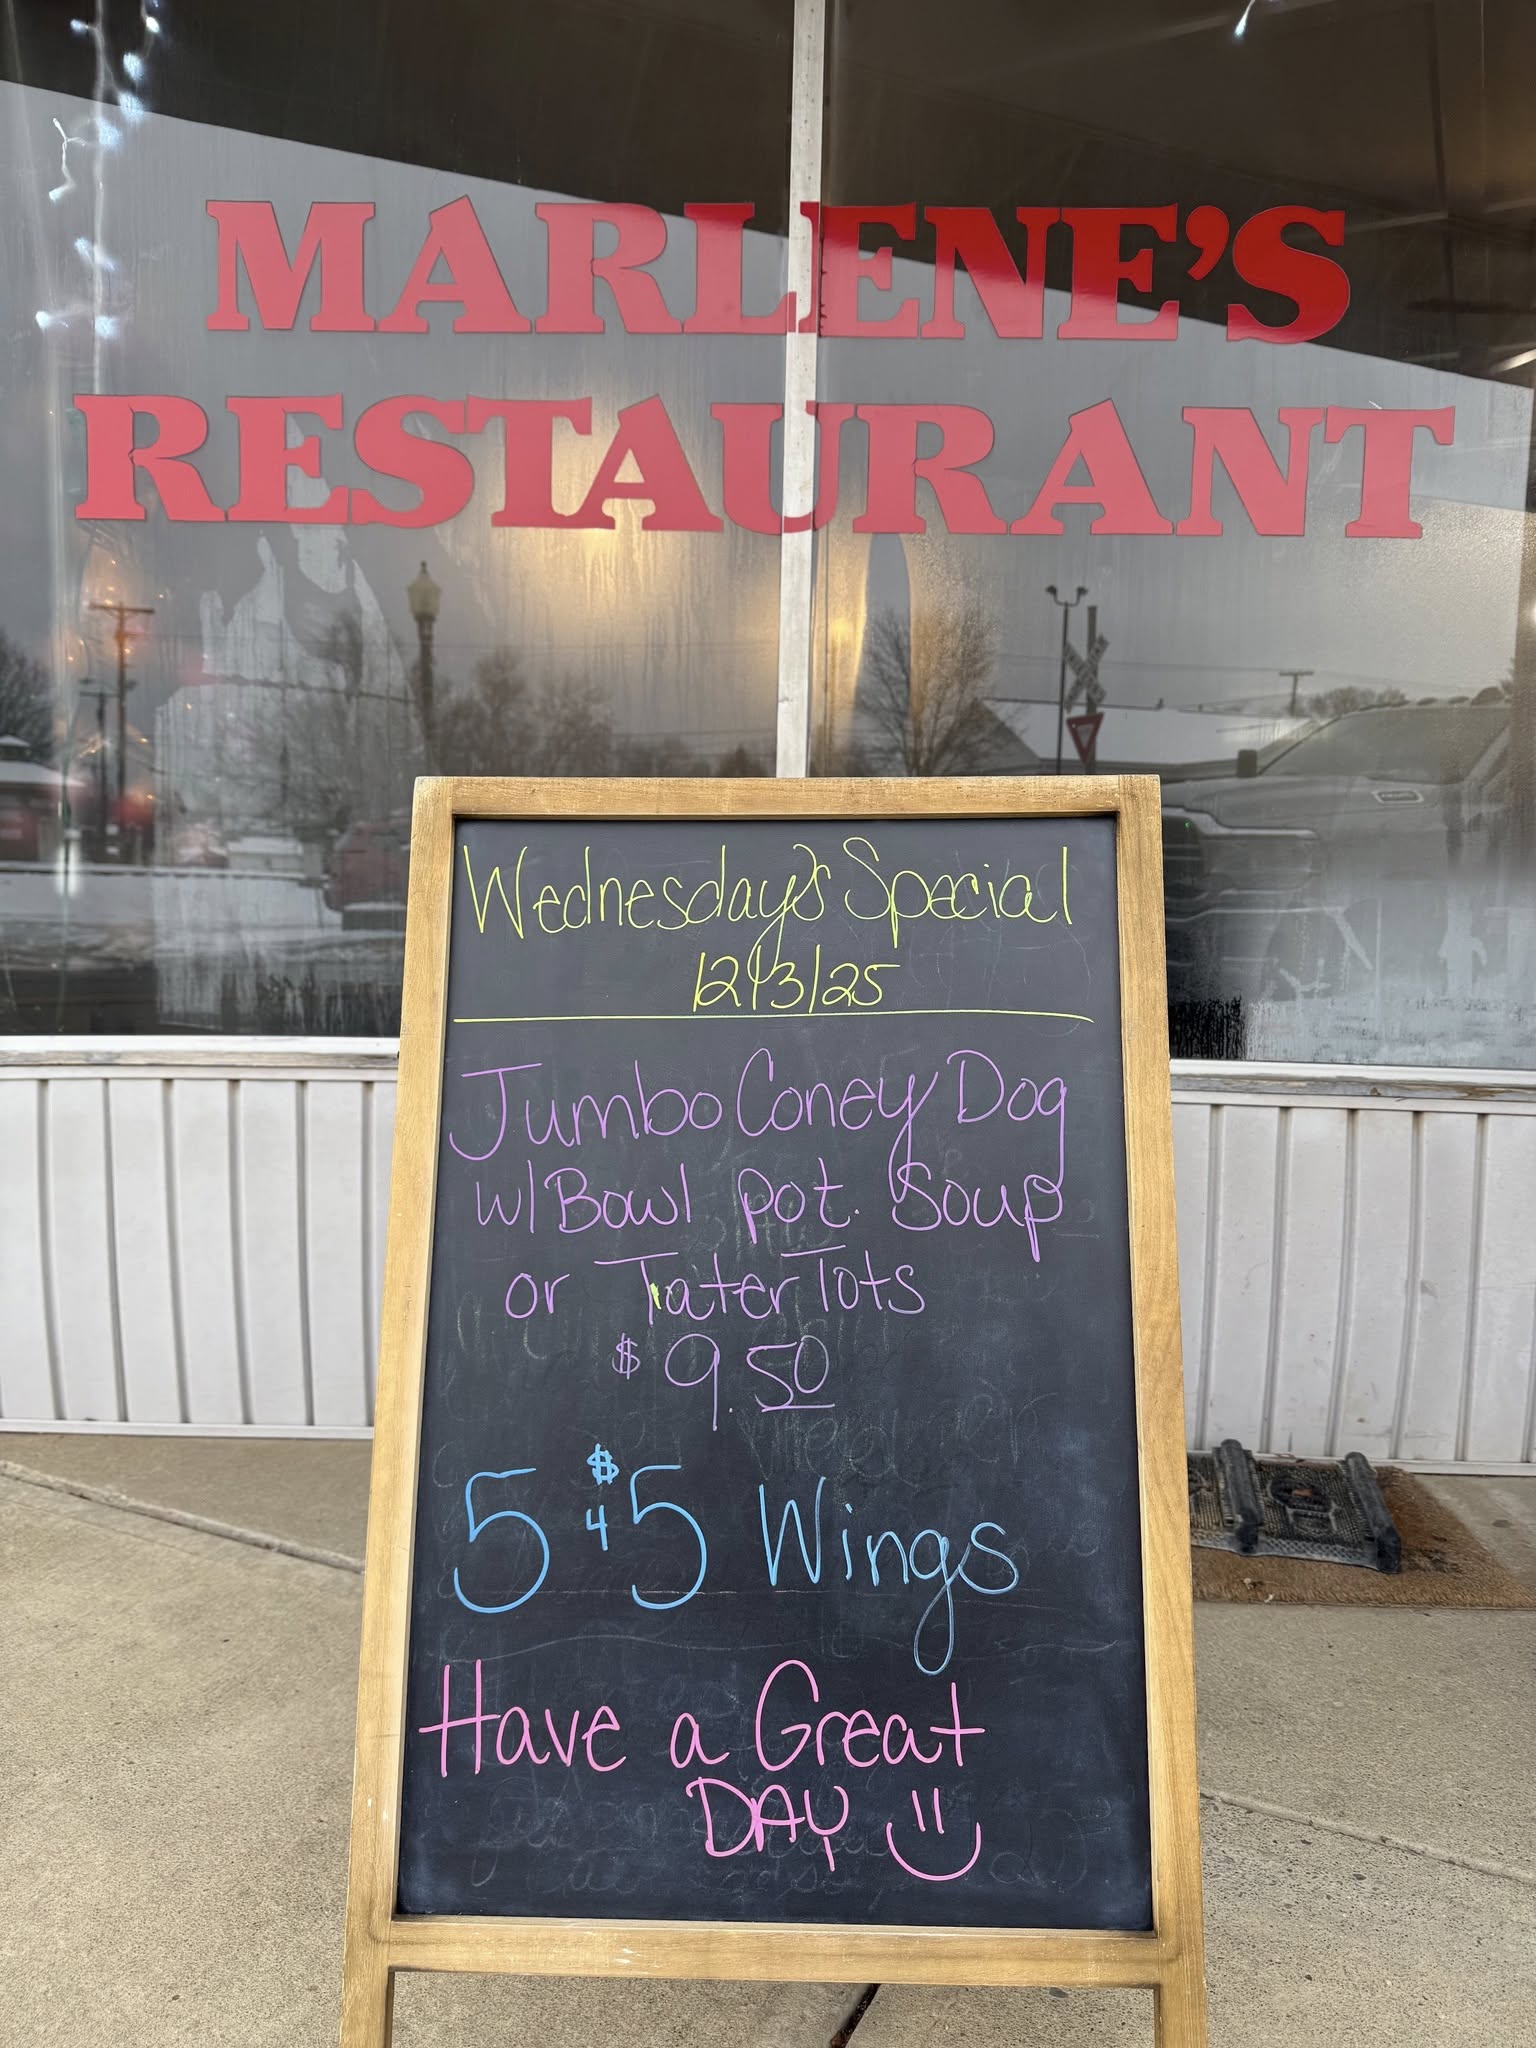 MARLENE'S
RESTAURANT
Wednesday's Special
12/3/25
Jumbo Coney Dog
w/ Bowl pot. Soup
or Tater Tots
$9.50
5 4 $5 Wings
Have a Great
DAY